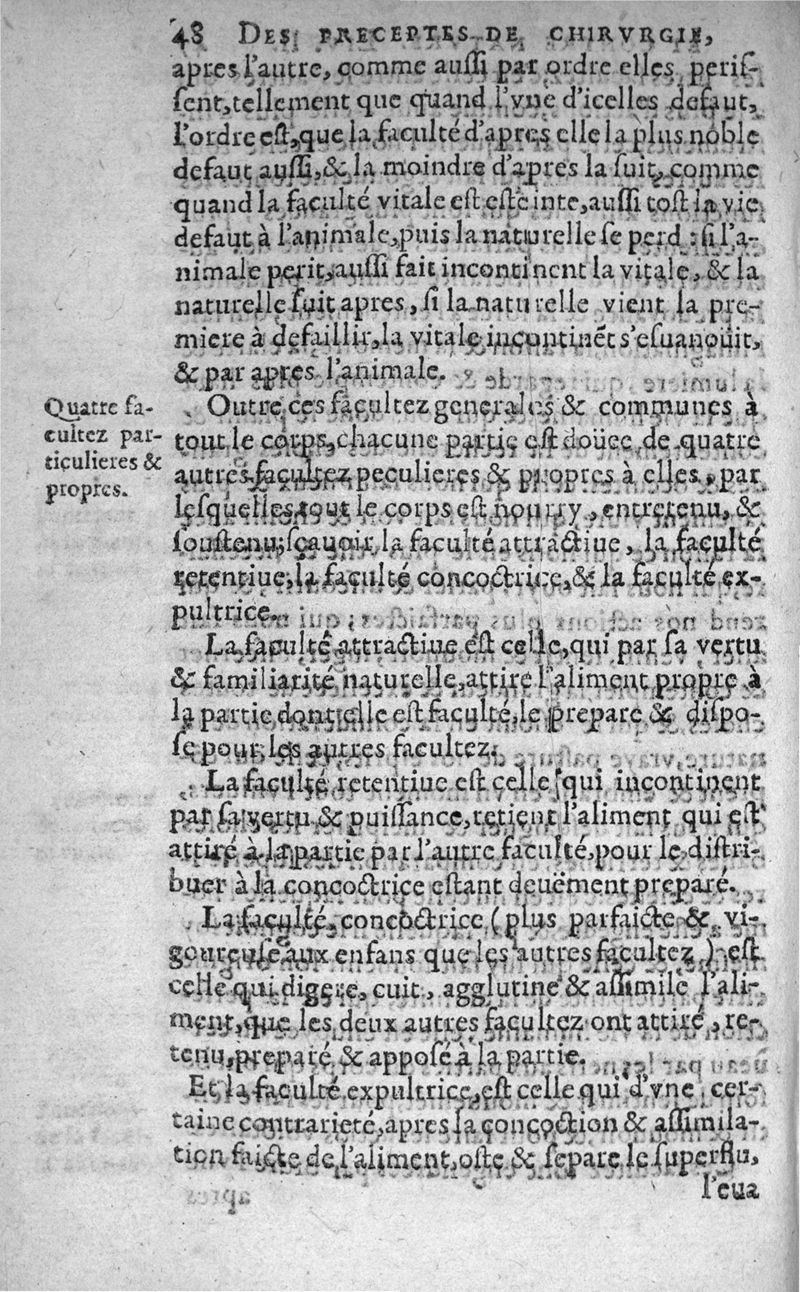 48 DES PRECEPTES DE CHIRVRGIE,
apres l'autre, comme aussi par ordre elles peris-
sent, tellement que quand l'vne d'icelles defaut,
l'ordre est, que la faculté d'apres elle la plus noble
defaut aussi, & la moindre d'apres la suit, comme
quand la faculté vitale est esteinte, aussi tost la vie
defaut à l'animale, puis la naturelle se perd : si l'a-
nimale perit, aussi fait incontinent la vitale, & la
naturelle suit apres, si la naturelle vient la pre-
miere à defaillir, la vitale incontinẽt s'esuanoüit,
& par apres l'animale.
Outre ces facultez generales & communes à
tout le corps, chacune partie est doüee de quatre
autres facultez peculieres & propres à elles, par
lesquelles tout le corps est nourry, entretenu, &
soustenu, sçauoir, la faculté attractiue, la faculté
retentiue, la faculté concoctrice, & la faculté ex-
pultrice.
Quatre fa-
cultez par-
ticulieres &
propres.
La faculté attractiue est celle, qui par sa vertu
& familiarité naturelle, attire l'aliment propre à
la partie dont elle est faculté, le prepare & dispo-
se pour les autres facultez.
La faculté retentiue est celle qui incontinent
par sa vertu & puissance, retient l'aliment qui est
attiré à la partie par l'autre faculté, pour le distri-
buer à la concoctrice estant deuëment preparé.
La faculté concoctrice (plus parfaicte & vi-
goureuse aux enfans que les autres facultez) est
celle qui digere, cuit, agglutine & assimile l'ali-
ment, que les deux autres facultez ont attiré, re-
tenu, preparé & apposé à la partie.
Et la faculté expultrice, est celle qui d'vne cer-
taine contrarieté, apres la concoction & assimila-
tion faicte de l'aliment, oste & separe le superflu,
l'eua